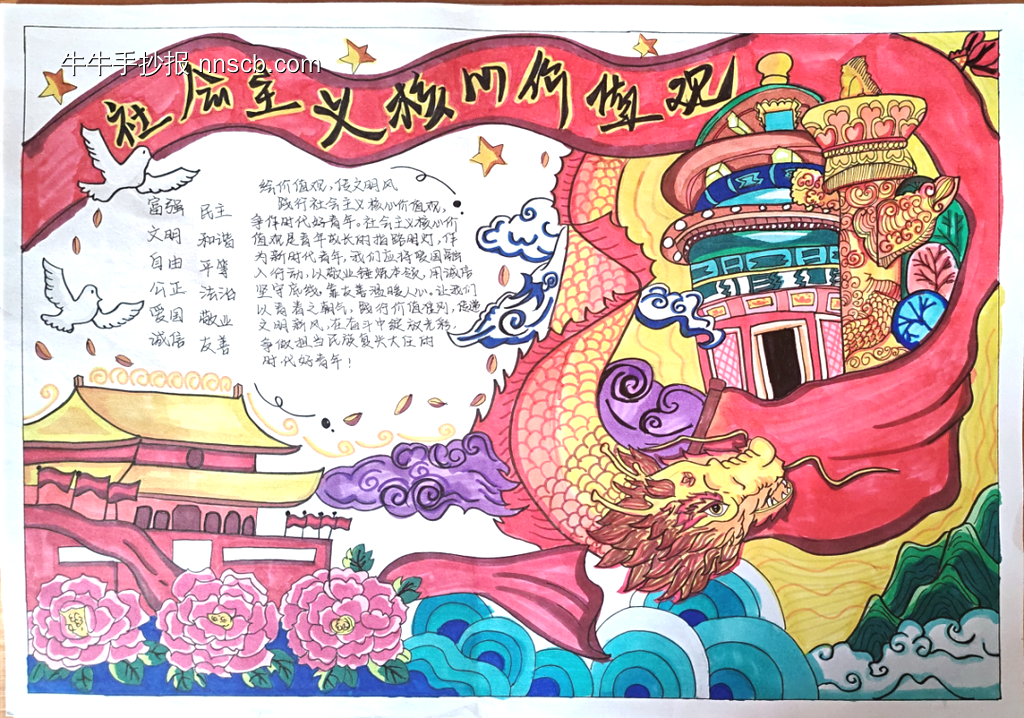 牛牛手抄报 nnscb.com
社会主义核心价值观
富强 民主
文明 和谐
自由 平等
公正 法治
爱国 敬业
诚信 友善
绘价值观，传文明风
践行社会主义核心价值观，
争作时代好青年。社会主义核心价
值观是青年成长的指路明灯，作
为新时代青年，我们应将爱国融
入行动，以敬业锤炼本领，用诚信
坚守底线，靠友善温暖人心。让我们
以青春之朝气，践行价值准则，传递
文明新风，在奋斗中绽放光彩，
争做担当民族复兴大任的
时代好青年！